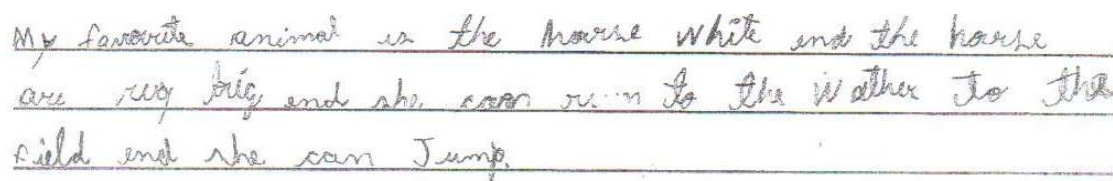 My favourite animal is the hourse white end the hourse
are rug big end she can to the Wather to the
field end she can Jump.